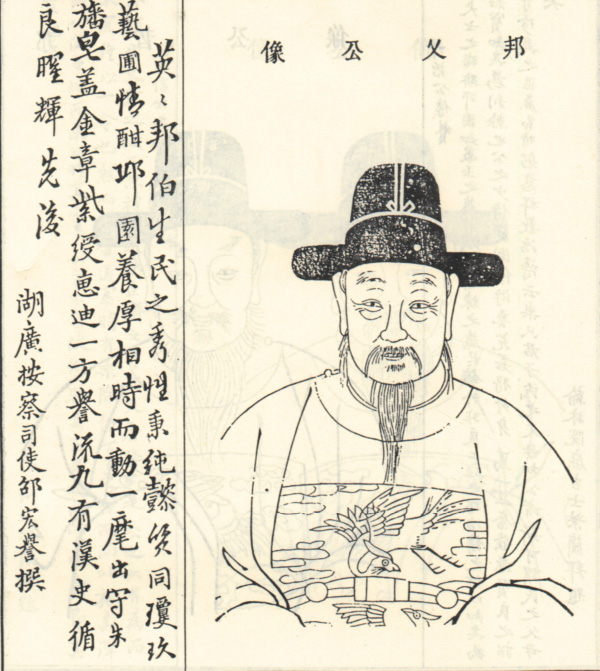 邦乂公像
英〻邦伯生民之秀性秉純懿質同瓊玖
藝圃情酣邱園養厚相時而動一麾出守朱
旛皂盖金章紫綬惠迪一方譽流九有漢史循
良輝先後
湖廣按察司使邵宏譽撰